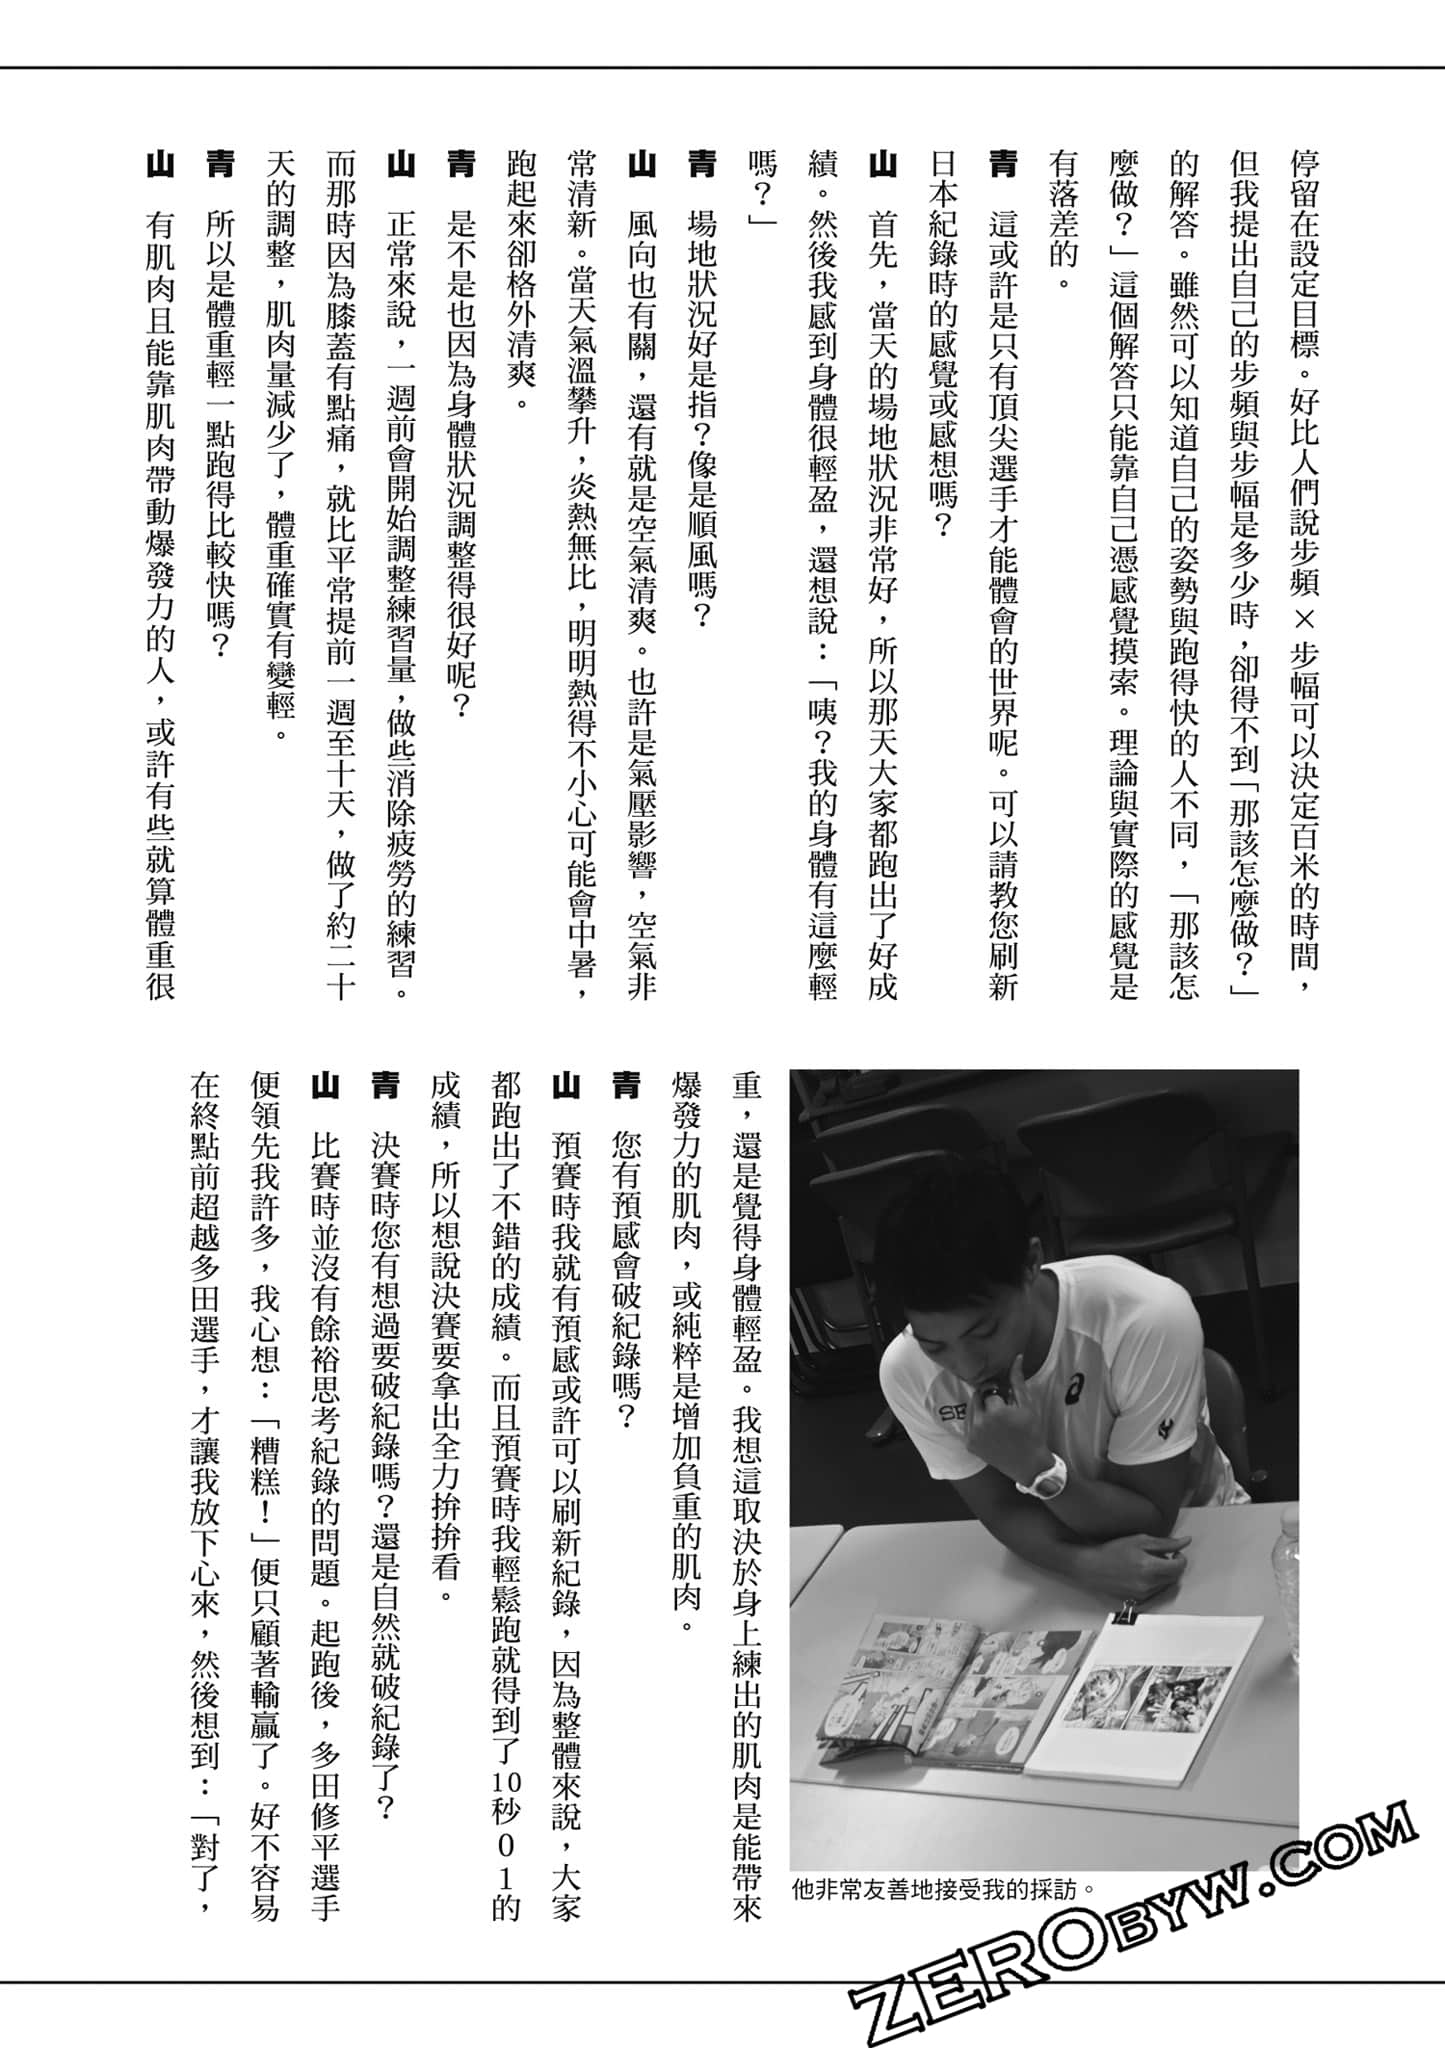 停留在設定目標。好比人們說步頻×步幅可以決定百米的時間，
但我提出自己的步頻與步幅是多少時，卻得不到「那該怎麼做？」
的解答。雖然可以知道自己的姿勢與跑得快的人不同，「那該怎
麼做？」這個解答只能靠自己憑感覺摸索。理論與實際的感覺是
有落差的。
青　這或許是只有頂尖選手才能體會的世界呢。可以請教您刷新
日本紀錄時的感覺或感想嗎？
山　首先，當天的場地狀況非常好，所以那天大家都跑出了好成
績。然後我感到身體很輕盈，還想說：「咦？我的身體有這麼輕
嗎？」
青　場地狀況好是指？像是順風嗎？
山　風向也有關，還有就是空氣清爽。也許是氣壓影響，空氣非
常清新。當天氣溫攀升，炎熱無比，明明熱得不小心可能會中暑，
跑起來卻格外清爽。
青　是不是也因為身體狀況調整得很好呢？
山　正常來說，一週前會開始調整練習量，做些消除疲勞的練習。
而那時因為膝蓋有點痛，就比平常提前一週至十天，做了約二十
天的調整，肌肉量減少了，體重確實有變輕。
青　所以是體重輕一點跑得比較快嗎？
山　有肌肉且能靠肌肉帶動爆發力的人，或許有些就算體重很
重，還是覺得身體輕盈。我想這取決於身上練出的肌肉是能帶來
爆發力的肌肉，或純粹是增加負重的肌肉。
青　您有預感會破紀錄嗎？
山　預賽時我就有預感或許可以刷新紀錄，因為整體來說，大家
都跑出了不錯的成績。而且預賽時我輕鬆跑就得到了10秒01的
成績，所以想說決賽要拿出全力拚拚看。
青　決賽時您有想過要破紀錄嗎？還是自然就破紀錄了？
山　比賽時並沒有餘裕思考紀錄的問題。起跑後，多田修平選手
便領先我許多，我心想：「糟糕！」便只顧著輸贏了。好不容易
在終點前超越多田選手，才讓我放下心來，然後想到：「對了，
SE
他非常友善地接受我的採訪。
ZEROBYW.COM